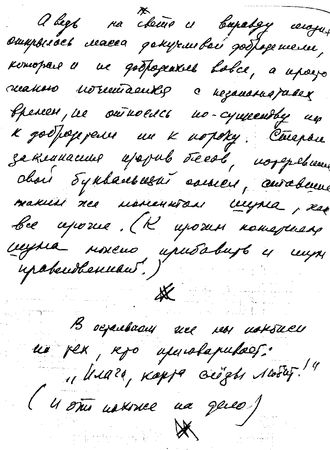 А ведь на свете и вправду
открылась масса докучливой добродетели,
которая и не добродетель вовсе, а просто
таковою почитается с незапамятных
времен, не относясь по-существу ни
к добродетели ни к пороку. Старые
заклинания против бесов, потерявшие
свой буквальный смысл, ставшие
таким же моментом шума, как
все прочие. (К прочим
шума можно прибавить и шум
нравственный.)
В остальном же мы похожи
на тех, кто приговаривает:
„Плачь, когда слёзы любит!"
(и это похоже на дело)